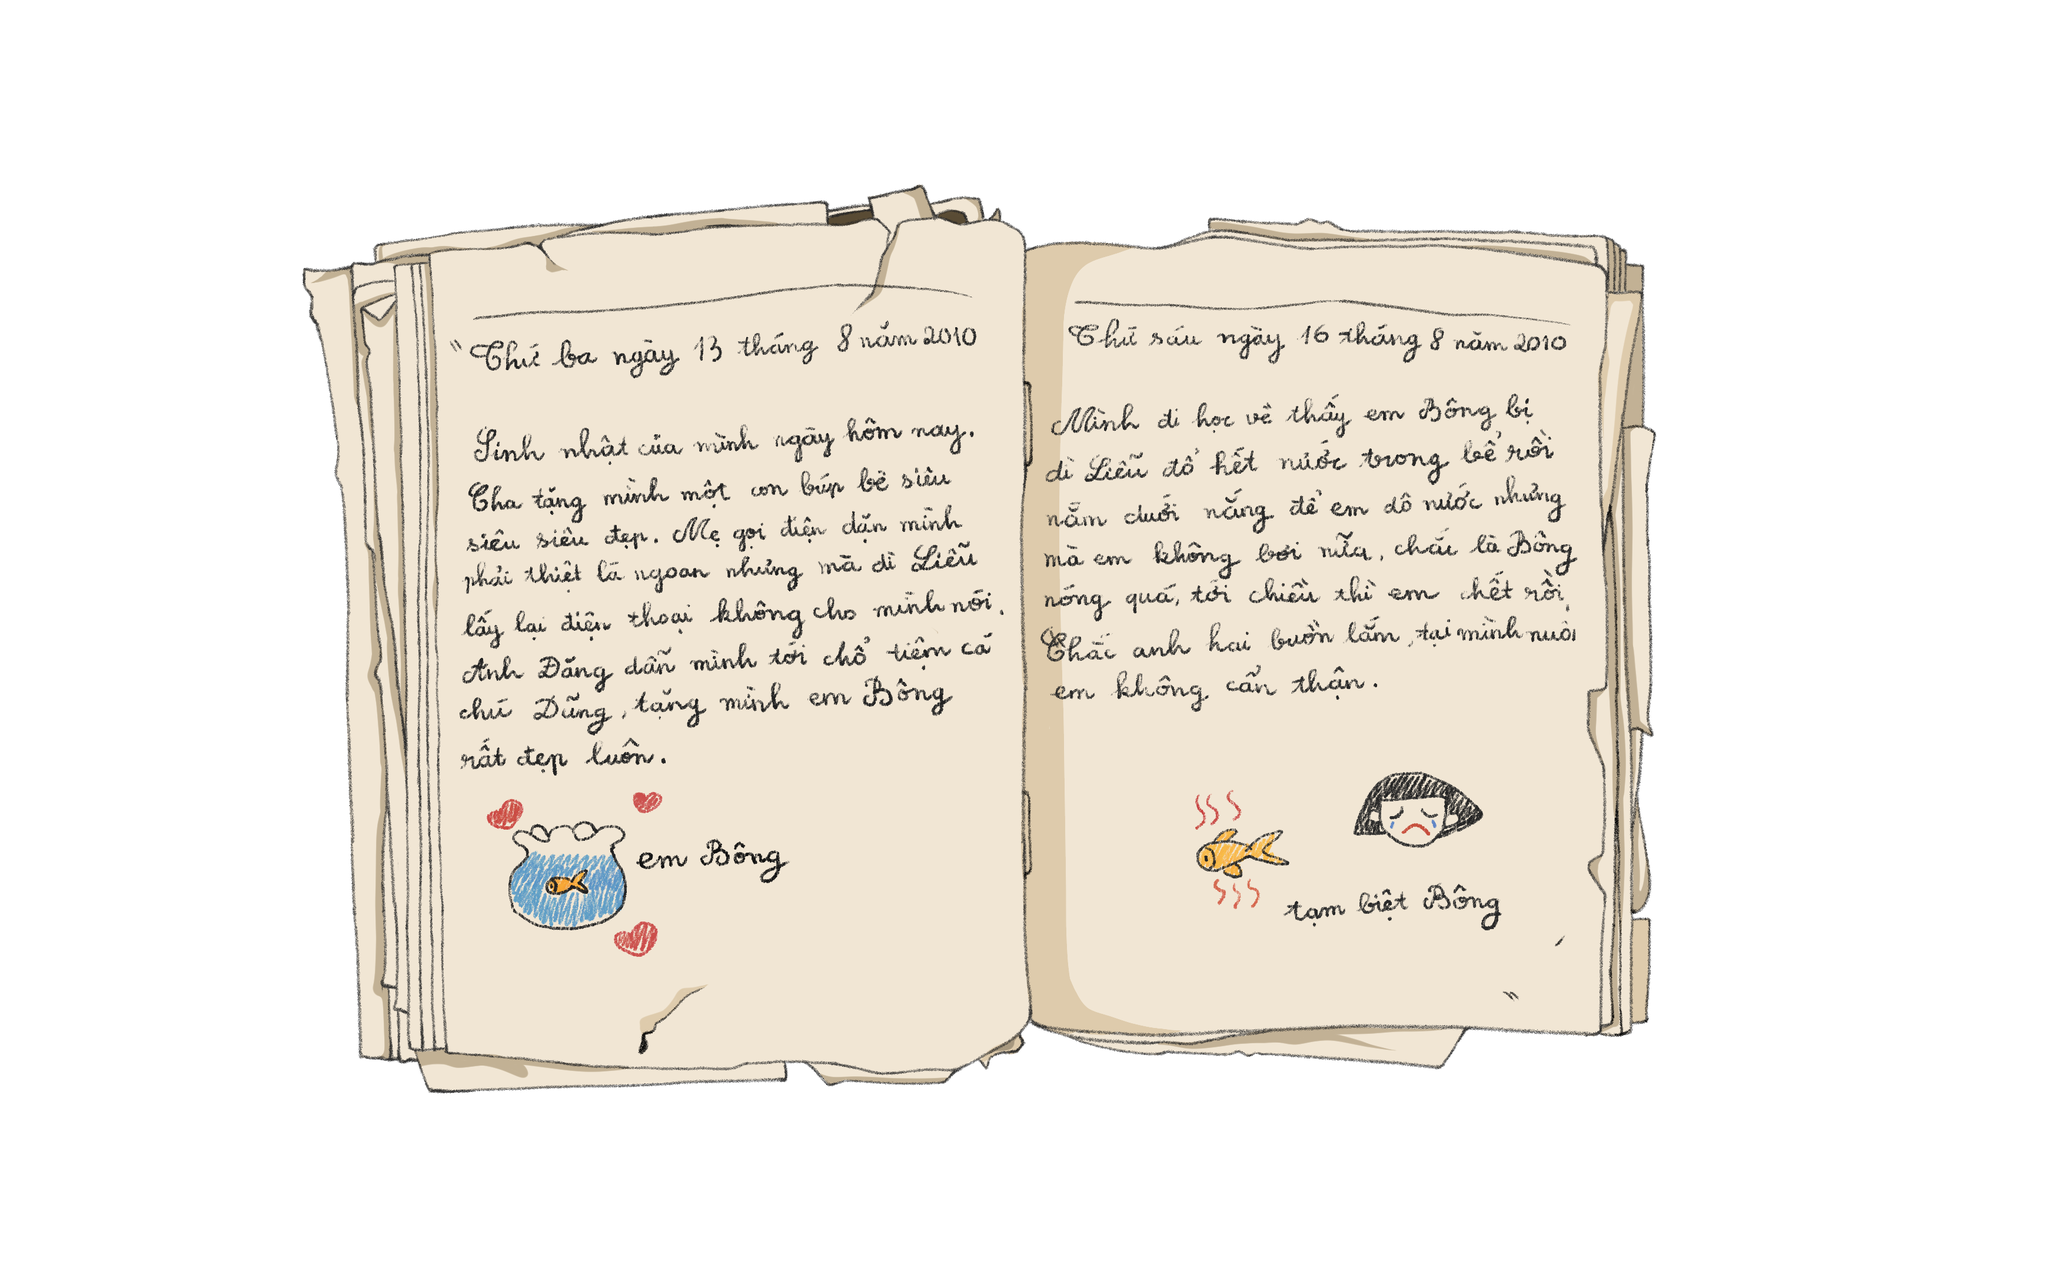 " Thứ ba ngày 13 tháng 8 năm 2010
Sinh nhật của mình ngày hôm nay.
Cha tặng mình một con búp bê siêu
siêu siêu đẹp. Mẹ gọi điện dặn mình
phải thiệt là ngoan nhưng mà dì Liễu
lấy lại điện thoại không cho mình nói.
Anh Đăng dẫn mình tới chổ tiệm cá
chú Dũng, tặng mình em Bông
rất đẹp luôn.
em Bông
Thứ sáu ngày 16 tháng 8 năm 2010
Mình đi học về thấy em Bông bị
dì Liễu đổ hết nước trong bể rồi
nằm dưới nắng để em dô nước nhưng
mà em không bơi nữa, chắc là Bông
nóng quá, tới chiều thì em chết rồi.
Chắc anh hai buồn lắm, tại mình nuôi
em không cẩn thận.
tạm biệt Bông
"